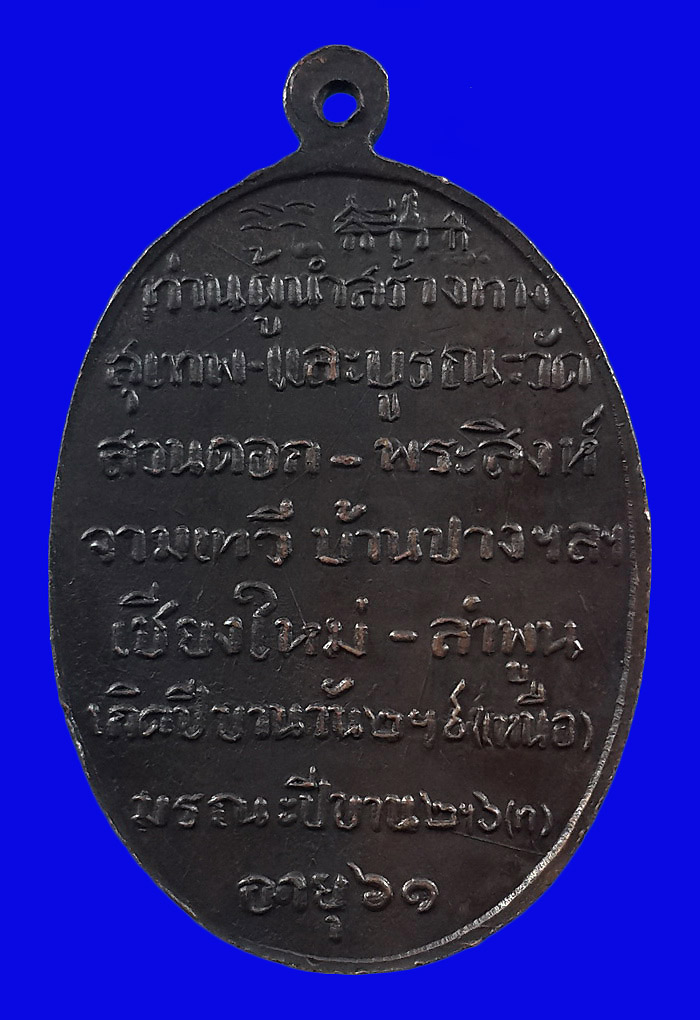 ท่านผู้นำสร้างทาง
สุเทพ-และบูรณะวัด
สวนดอก - พระสิงห์
จามเทวี บ้านปางฯลฯ
เชียงใหม่ - ลำพูน
เกิดปีขาน วัน ๒ฯ (เหนือ)
มรณะปีขาน ๒ฯ๖ (ท)
อายุ ๖๑